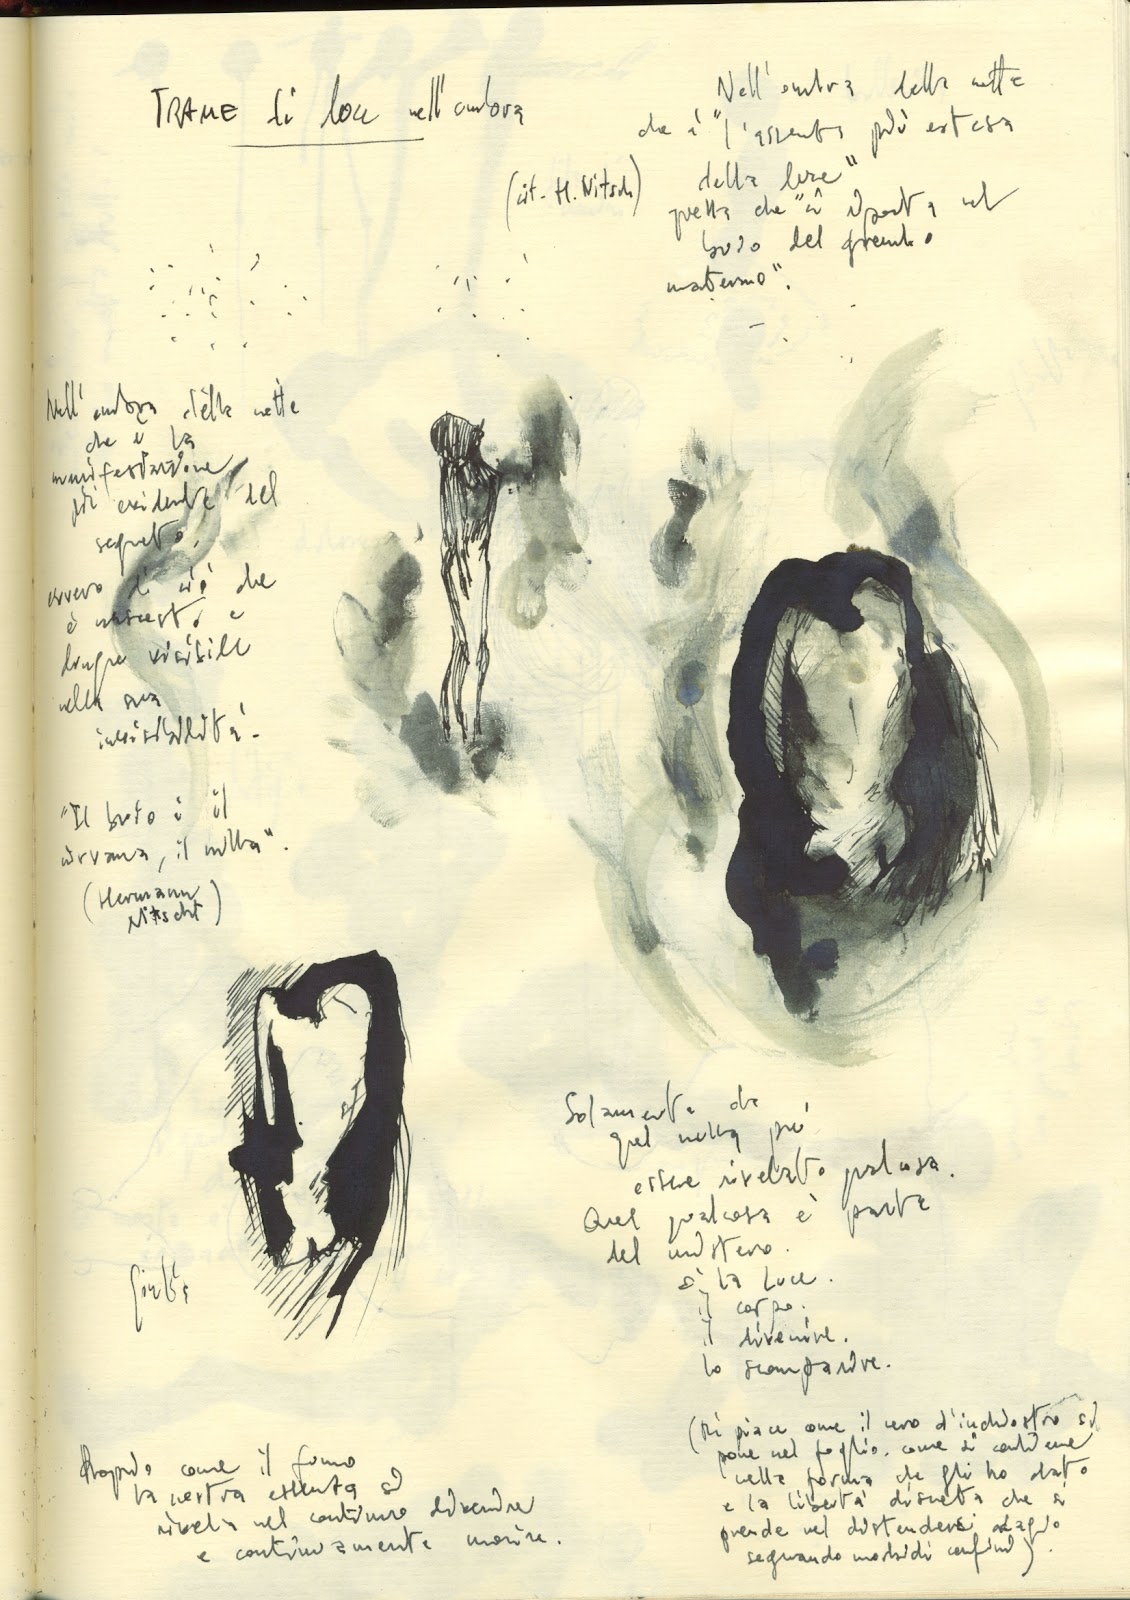 TRAME di luce nell'ombra
Nell'ombra della notte
che è "l'assenza più estesa
della luce"
(cit. H. Nitsch)
quella che "ci riporta nel
buio del grembo
materno".
Nell'ombra della notte
che è la
manifestazione
più evidente del
segreto,
ovvero di ciò che
è nascosto e
dunque visibile
nella sua
invisibilità.
"Il vuoto è il
nirvana, il nulla".
(Hermann
Nitsch)
Solamente da
quel nulla può
essere rivelato qualcosa.
Quel qualcosa è parte
del mistero.
È la luce.
il corpo.
il divenire.
lo scomparire.
(Mi piace come il nero d'inchiostro si
pone nel foglio. come si contiene
nella forma che gli ho dato
e la libertà discreta che si
prende nel distendersi adagio
segnando morbidi confini).
Proprio come il fumo
la nostra essenza si
rivela nel continuo divenire
e continuamente morire.